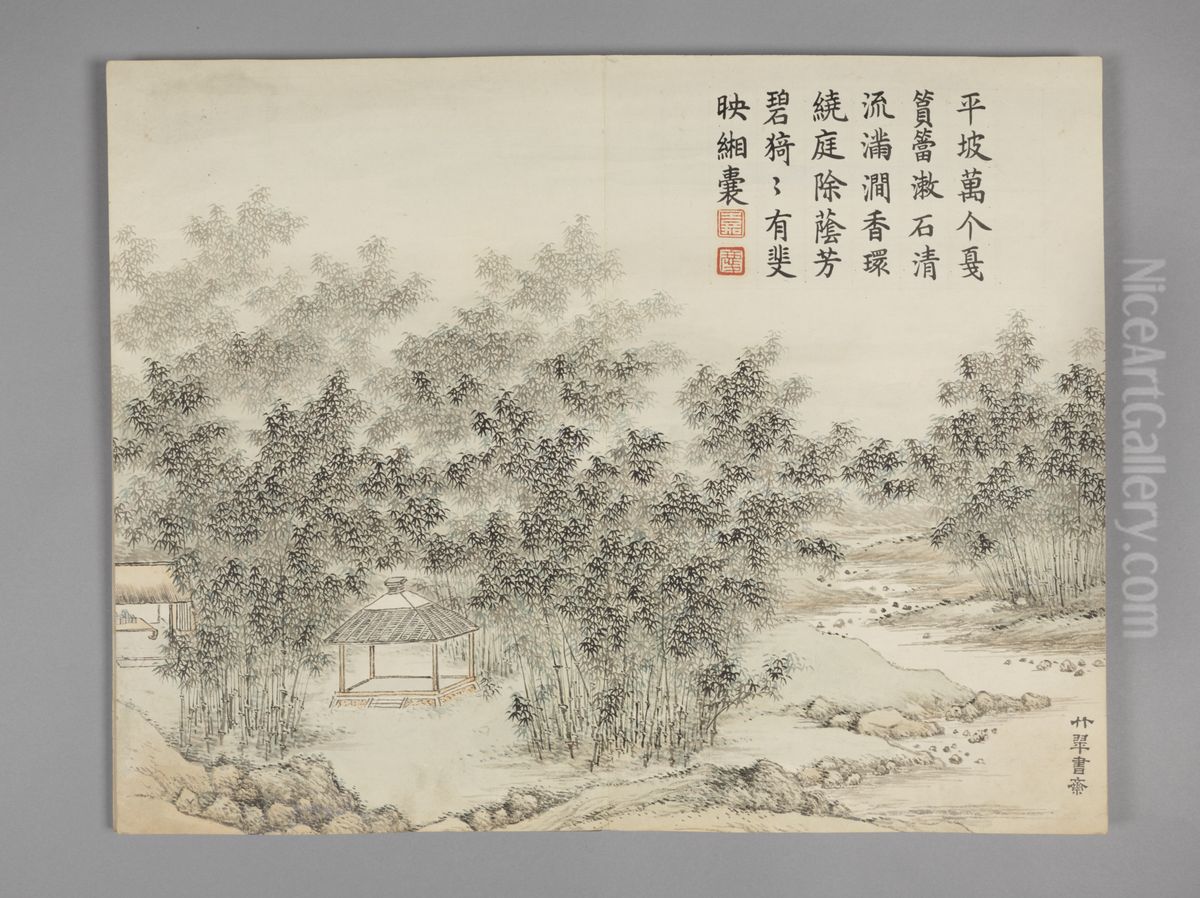 平坡萬个戞
篔簹潄石清
流滿澗香環
繞庭除蔭芳
碧猗〻有斐
映緗囊
竹翠書齋
NiceArtGallery.com